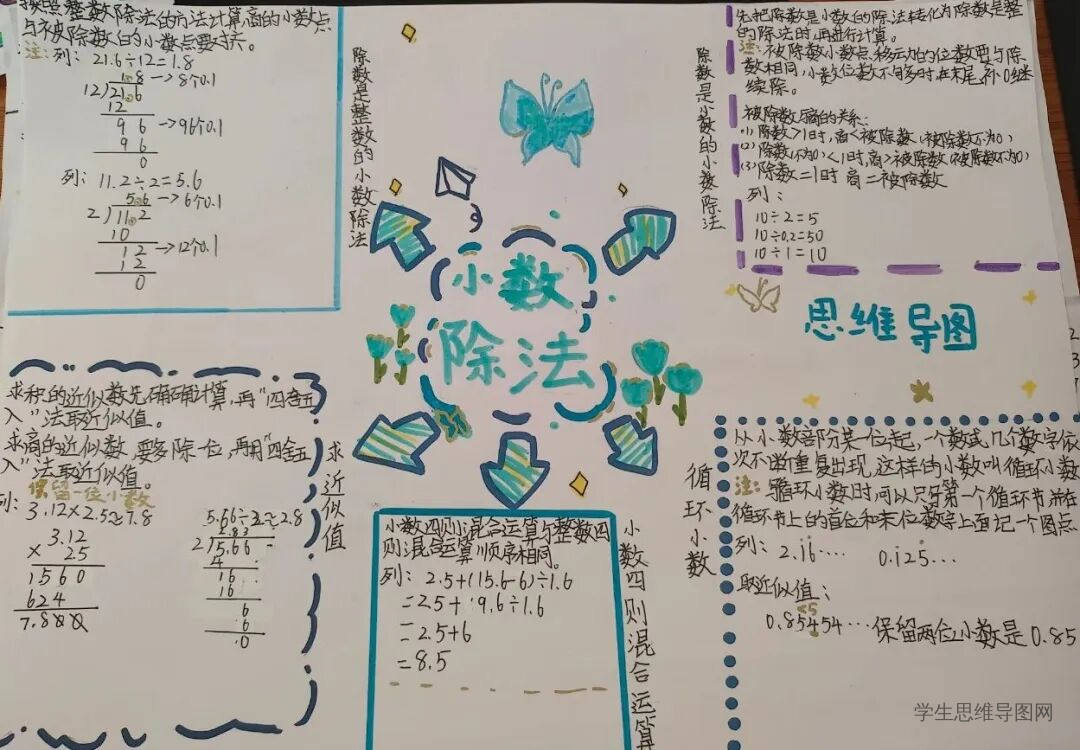 按照整数除法的方法计算,商的小数点
与被除数的小数点要对齐。
注:列:21.6÷12=1.8
1.8→8个0.1
12)21.6
12
9 6→96个0.1
9 6
0
列:11.2÷2=5.6
5.6→6个0.1
2)11.2
10
1 2→12个0.1
1 2
0
除数是整数的小数除法
小数
除法
除数是小数的小数除法
先把除数是小数的除法转化为除数是整
的除法时,再进行计算。
注:被除数小数点移动的位数要与除
数相同,小数位数不够时,在末尾补0继
续除。
被除数与商的关系:
(1)除数>1时,商<被除数(被除数不为0)
(2)除数(不为0)<1时,商>被除数(被除数不为0)
(3)除数=1时 商=被除数
列:
10÷2=5
10÷0.2=50
10÷1=10
思维导图
求积的近似数先准确计算,再"四舍五
入"法取近似值。
求商的近似数,要多除一位,再用"四舍五
入"法取近似值。
保留一位小数
列:3.12×2.5≈7.8
3.12
× 2.5
1560
624
7.800
5.66÷2≈2.8
2.83
2)5.66
4
16
16
6
6
0
求近似值
小数四则混合运算与整数四
则混合运算顺序相同。
列:2.5+(15.6-6)÷1.6
=2.5+9.6÷1.6
=2.5+6
=8.5
小数四则混合运算
循环小数
从小数部分某一位起,一个数或几个数字依
次不断重复出现,这样的小数叫循环小数
注:写循环小数时,可以只写第一个循环节,并在
循环节上的首位和末位数字上面记一个圆点
列:2.16… 0.125…
取近似值:
<5
0.85454…保留两位小数是0.85
学生思维导图网